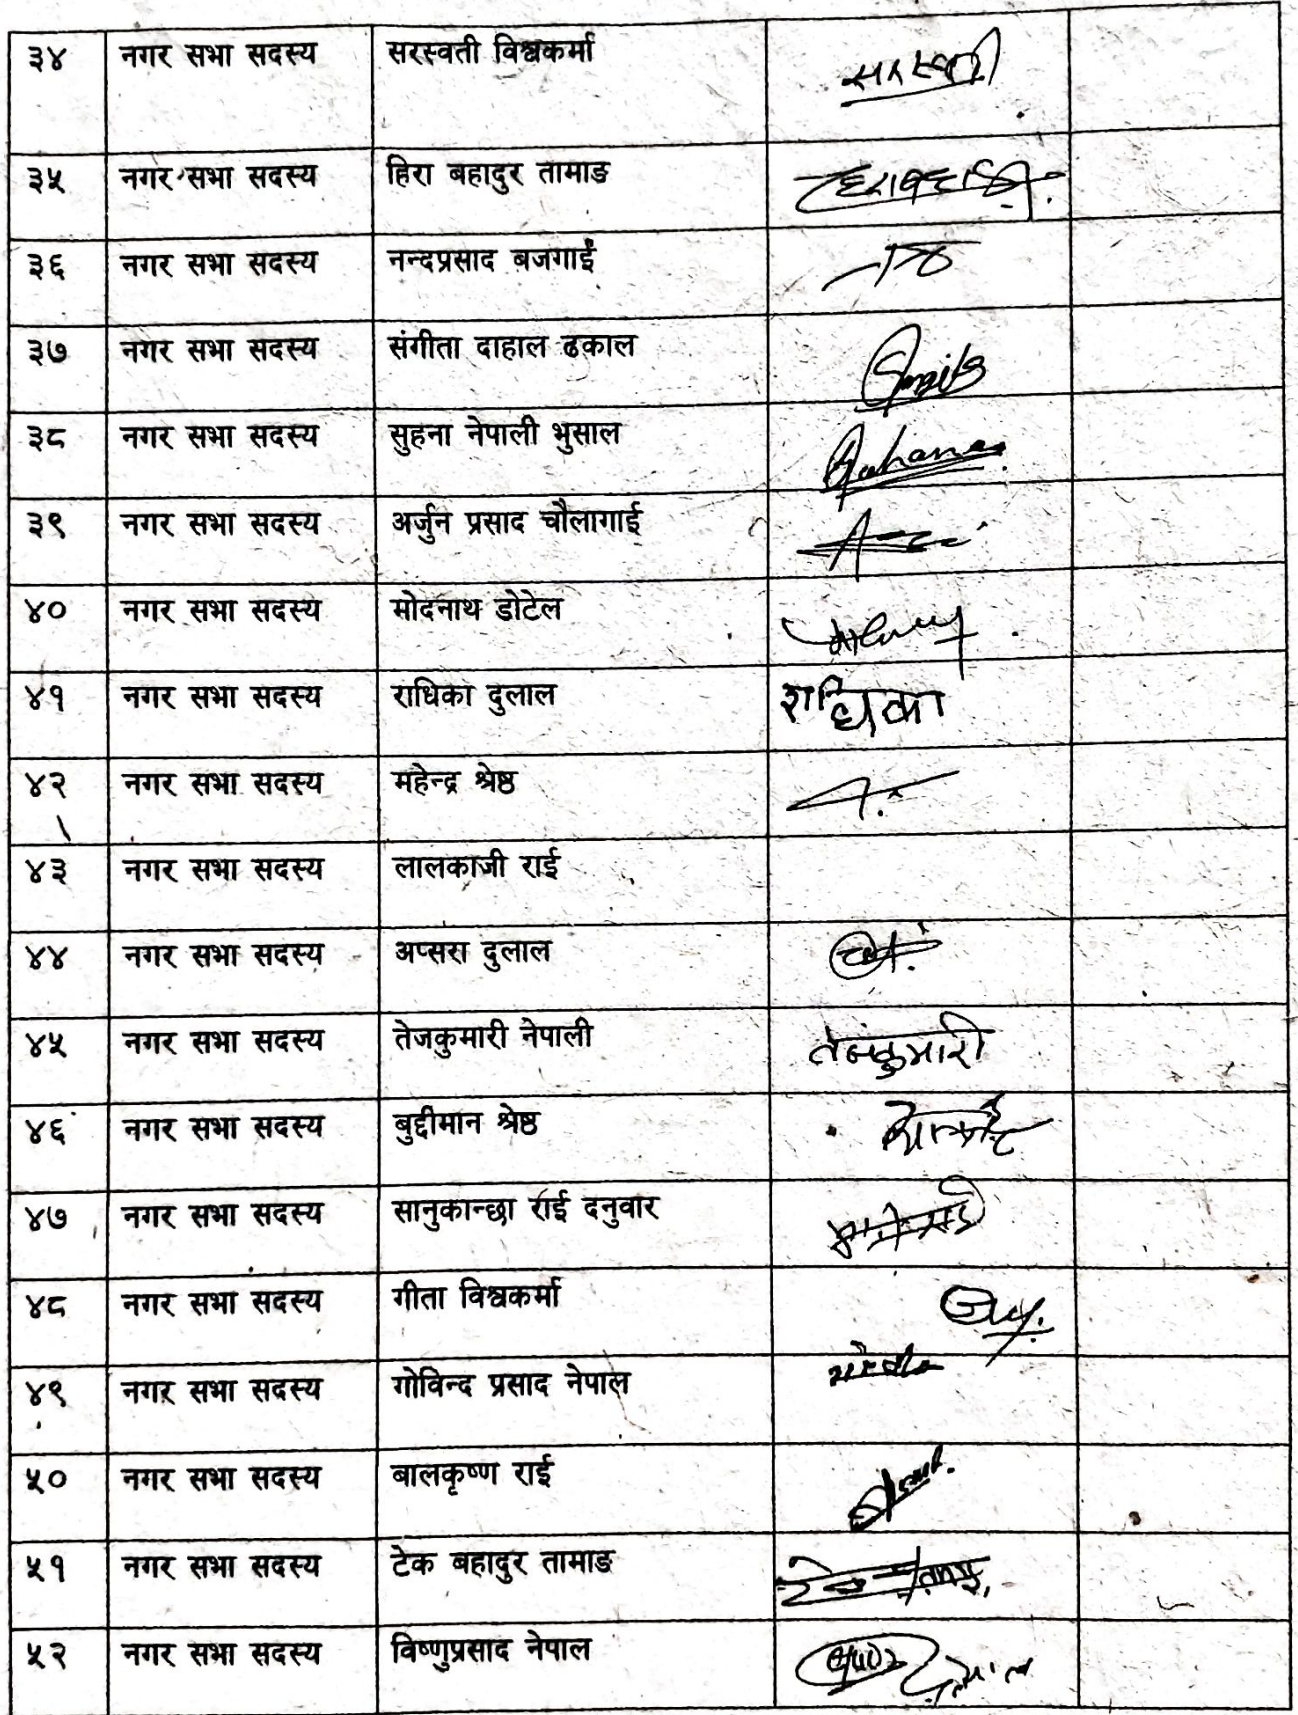 ३४ नगर सभा सदस्य सरस्वती विश्वकर्मा सरस्वती
३५ नगर सभा सदस्य हिरा बहादुर तामाङ
३६ नगर सभा सदस्य नन्दप्रसाद बजगाईं
३७ नगर सभा सदस्य संगीता दाहाल ढकाल
३८ नगर सभा सदस्य सुहना नेपाली भुसाल
३९ नगर सभा सदस्य अर्जुन प्रसाद चौलागाई
४० नगर सभा सदस्य मोदनाथ डोटेल
४१ नगर सभा सदस्य राधिका दुलाल राधिका
४२ नगर सभा सदस्य महेन्द्र श्रेष्ठ
४३ नगर सभा सदस्य लालकाजी राई
४४ नगर सभा सदस्य अप्सरा दुलाल
४५ नगर सभा सदस्य तेजकुमारी नेपाली तेजकुमारी
४६ नगर सभा सदस्य बुद्दीमान श्रेष्ठ
४७ नगर सभा सदस्य सानुकान्छा राई दनुवार
४८ नगर सभा सदस्य गीता विश्वकर्मा
४९ नगर सभा सदस्य गोविन्द प्रसाद नेपाल
५० नगर सभा सदस्य बालकृष्ण राई
५१ नगर सभा सदस्य टेक बहादुर तामाङ
५२ नगर सभा सदस्य विष्णुप्रसाद नेपाल